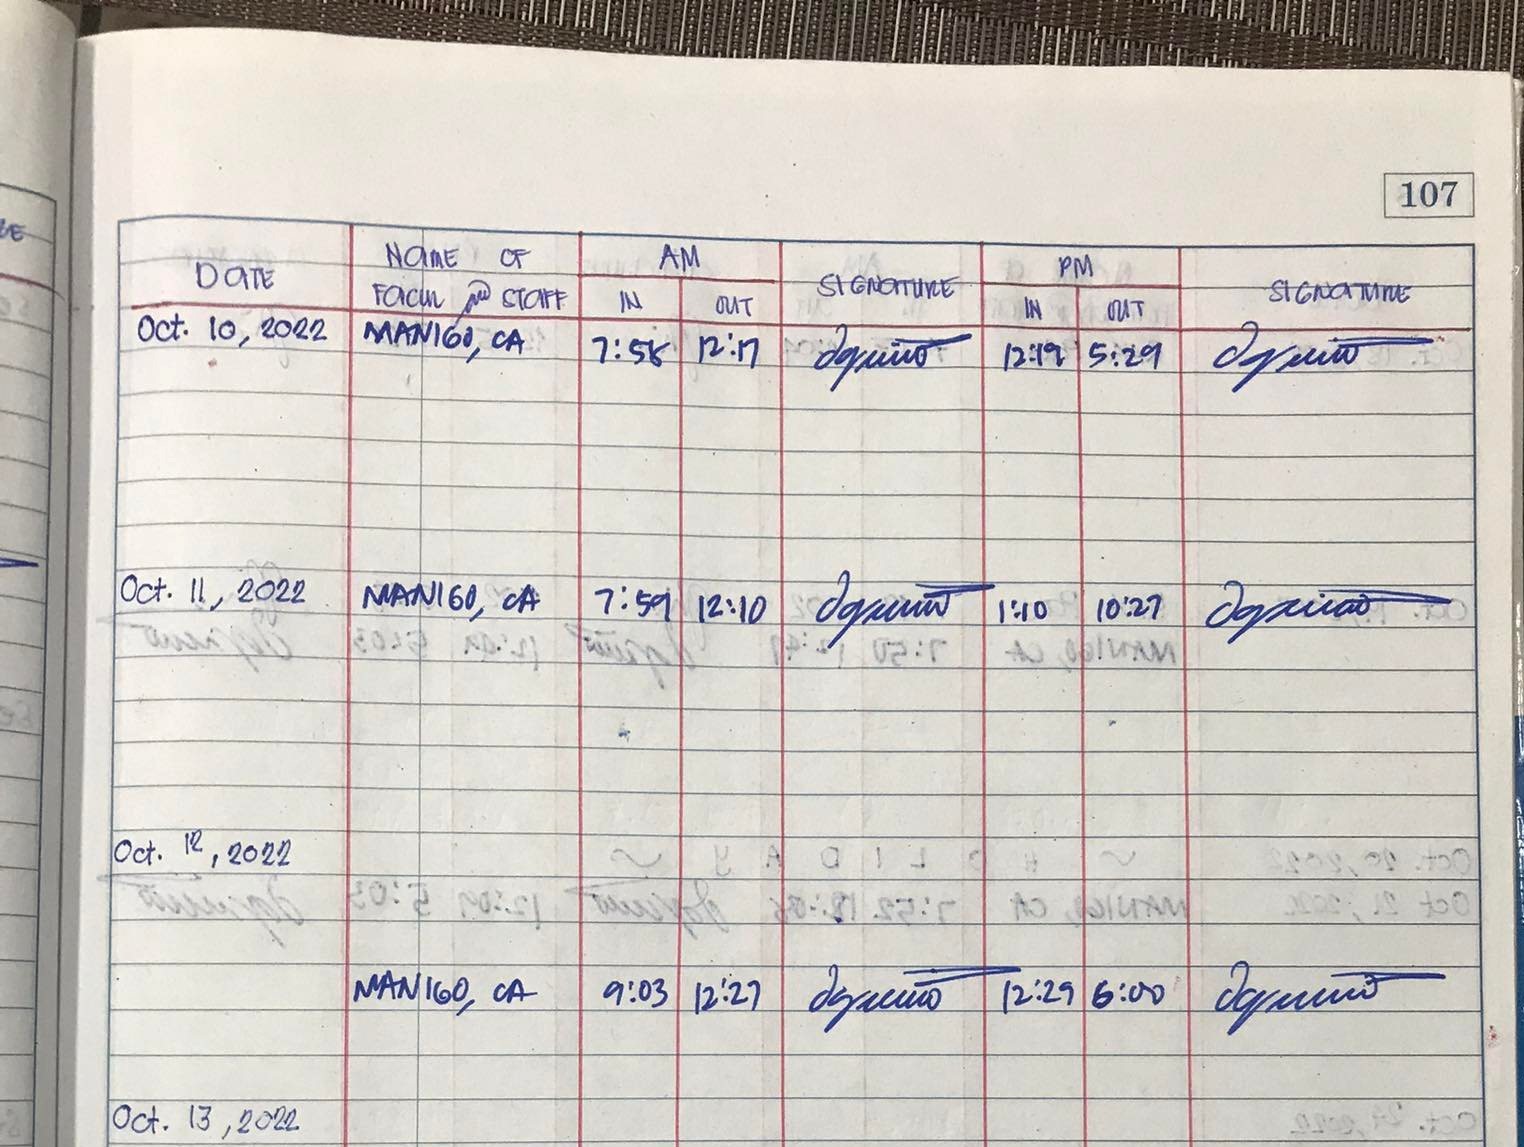 107
DATE NAME OF FACUL and STAFF AM IN OUT SIGNATURE PM IN OUT SIGNATURE
Oct. 10, 2022 MANIGO, CA 7:58 12:17 12:19 5:29
Oct. 11, 2022 MANIGO, CA 7:59 12:10 1:10 10:27
Oct. 12, 2022
MANIGO, CA 9:03 12:27 12:29 6:00
Oct. 13, 2022